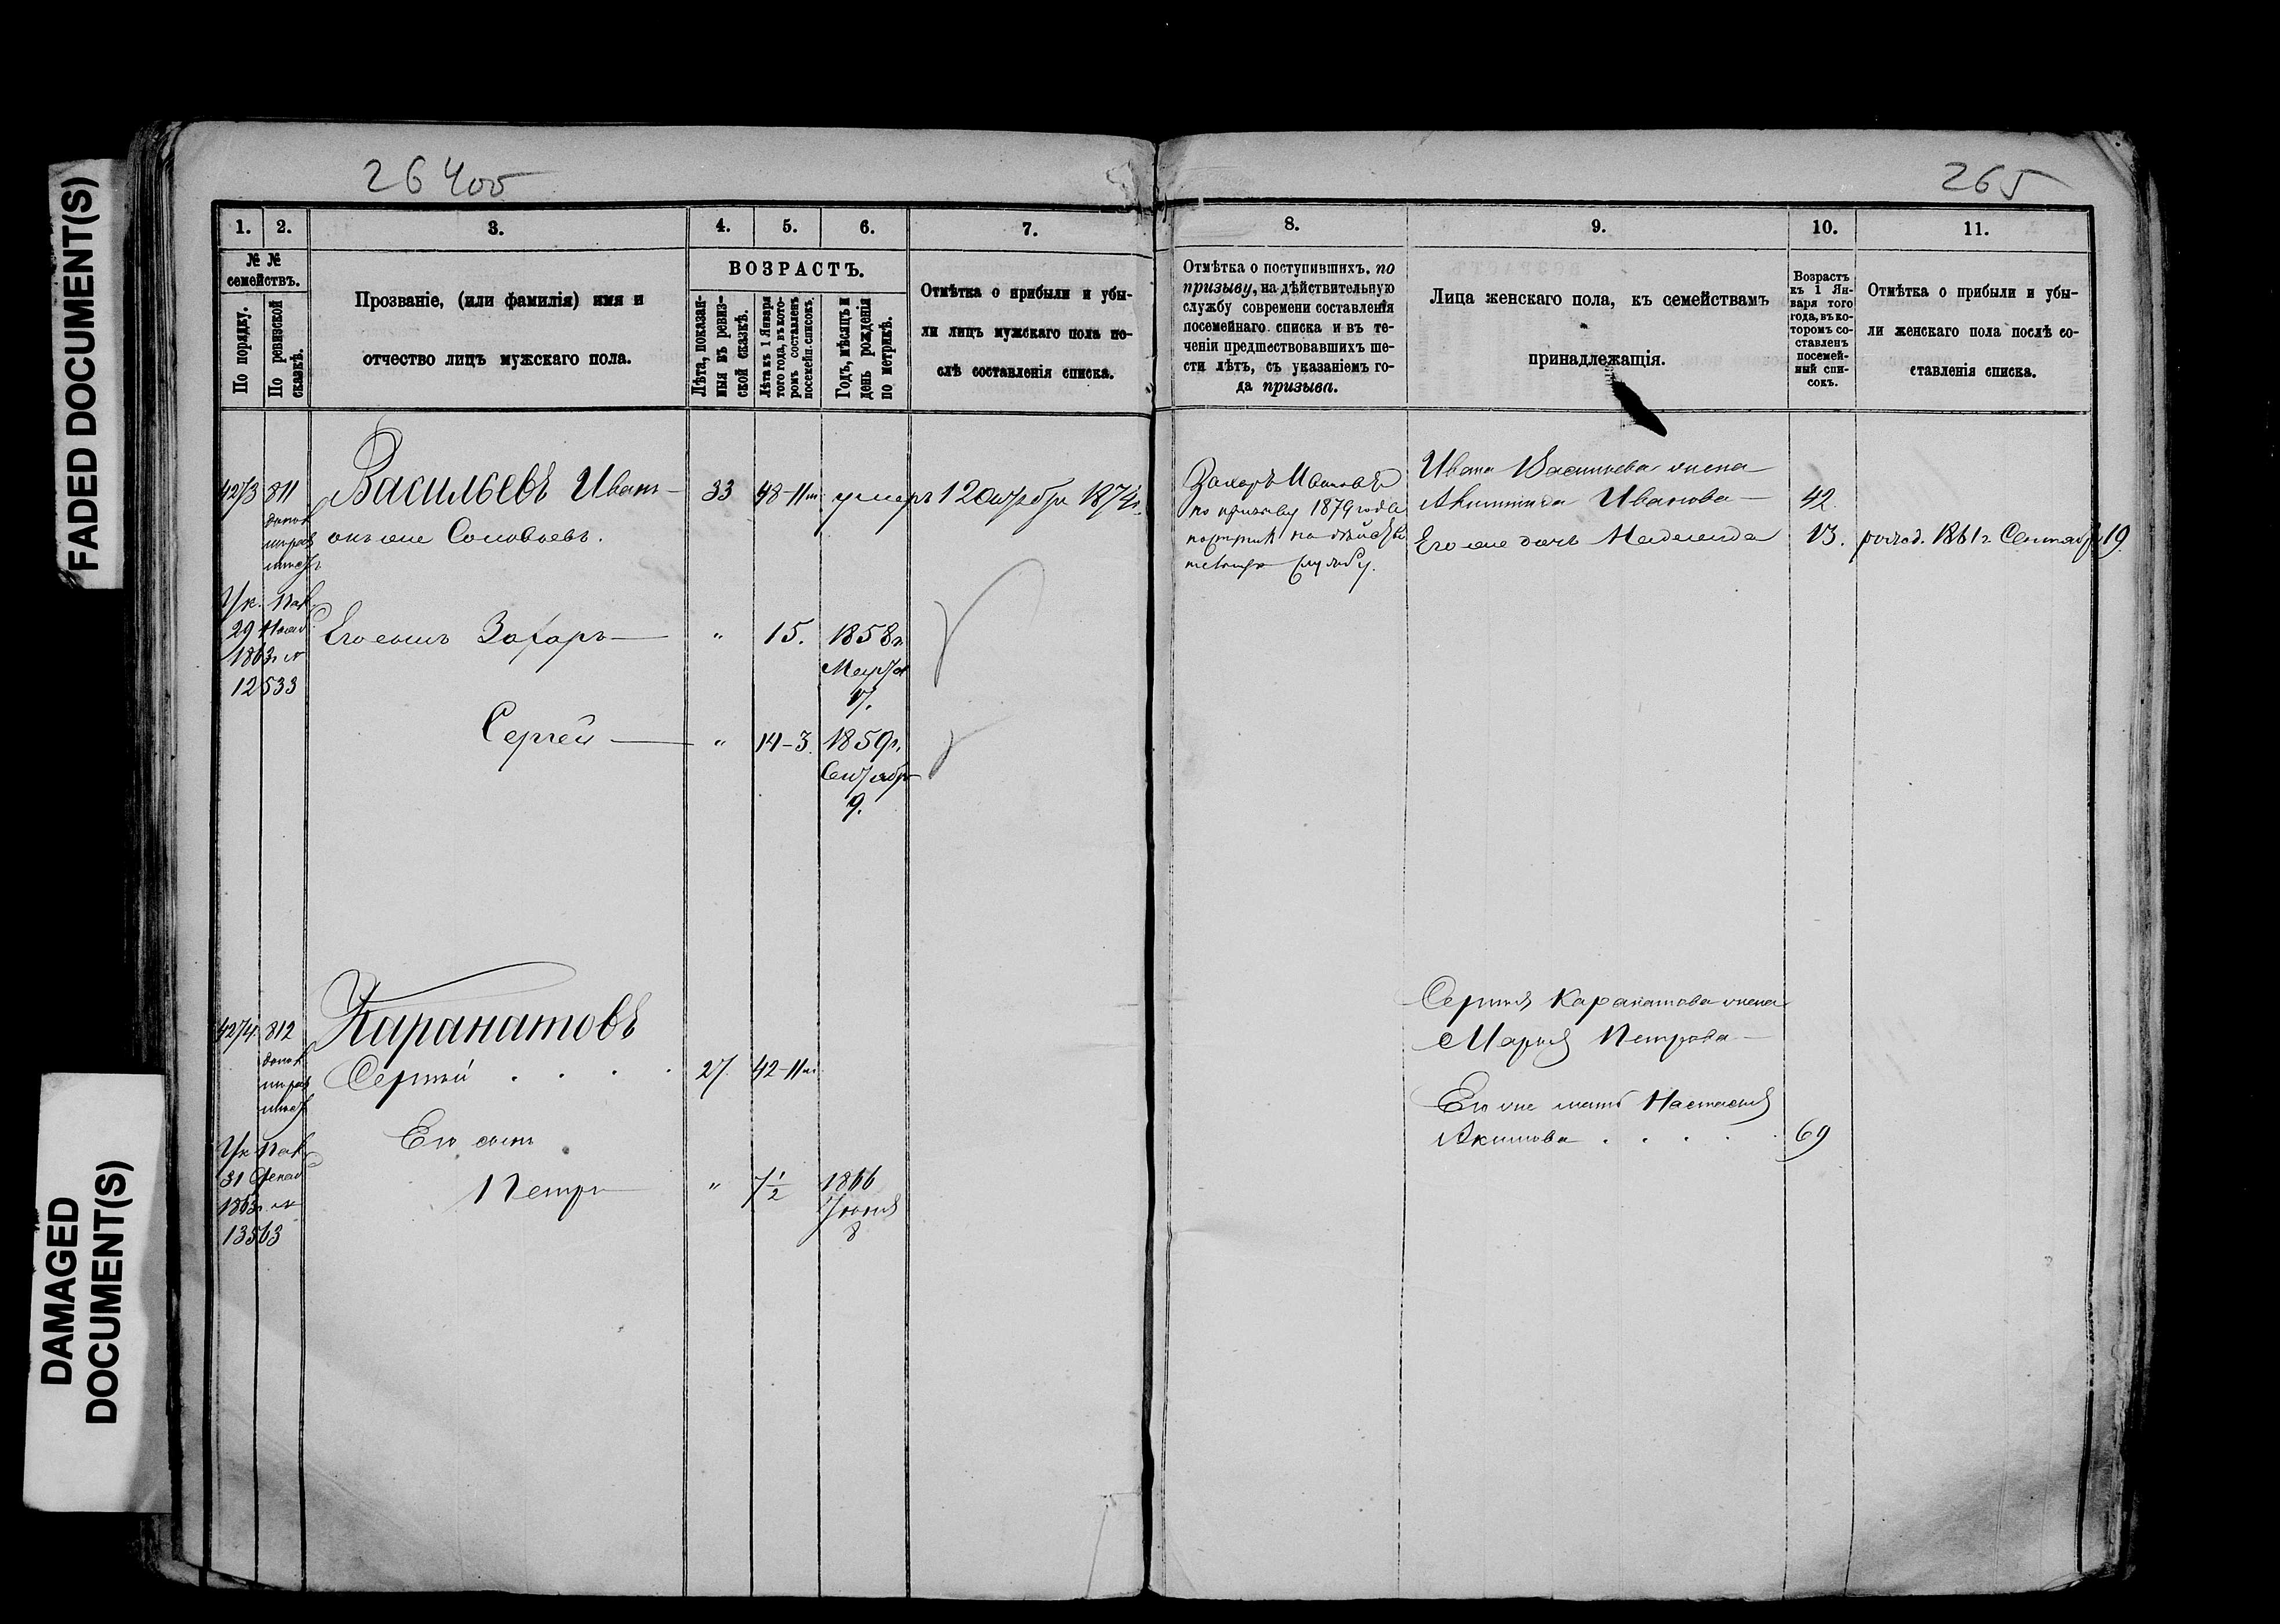 FADED DOCUMENT(S)
DAMAGED
DOCUMENT(S)
26 400
265
1.
2.
3.
4.
5.
6.
7.
№ №
семействъ.
По порядку.
По ревизской
сказкѣ.
Прозваніе, (или фамилія) имя и
отчество лицъ мужскаго пола.
ВОЗРАСТЪ.
Лѣта, показан-
ныя въ ревиз-
ской сказкѣ.
Лѣта къ 1 Января
того года, въ кото-
ромъ составленъ
посемейн. списокъ.
Годъ, мѣсяцъ и
день рожденія
по метрикѣ.
Отмѣтка о прибыли и убы-
ли лицъ мужскаго пола по-
слѣ составленія списка.
4273
811
Васильевъ Иванъ
33
48-11м
умеръ 12 Октября 1874г.
онъ же Соловьевъ.
Ук. Пал.
29 Нояб.
1863г. №
12533
Его сынъ Захаръ
"
15.
1858г.
Марта
17.
Сергей
"
14-3.
1859г.
Сентября
9.
4274
812
Каранатовъ
Сергѣй
27.
42-11м
Ук. Пал.
31 Декаб
1863г. №
13563
Его сынъ
Петръ
"
7½
1866
Іюня
8
8.
9.
10.
11.
Отмѣтка о поступившихъ, по
призыву, на дѣйствительную
службу современи составленія
посемейнаго списка и въ те-
ченіи предшествовавшихъ ше-
сти лѣтъ, съ указаніемъ го-
да призыва.
Лица женскаго пола, къ семействамъ
принадлежащія.
Возрастъ
къ 1 Ян-
варя того
года, въ ко-
торомъ со-
ставленъ
посемей-
ный спи-
сокъ.
Отмѣтка о прибыли и убы-
ли женскаго пола послѣ со-
ставленія списка.
Захаръ Ивановъ
по призыву 1879 года
на дѣйстви
тельную службу.
Ивана Васильева жена
Иванова
42.
Его же дочь
13.
рожд. 1861г. Сентября 19.
Сергѣя Каранатова жена
Марья Петрова
Его же мать Настасья
Акимова
69